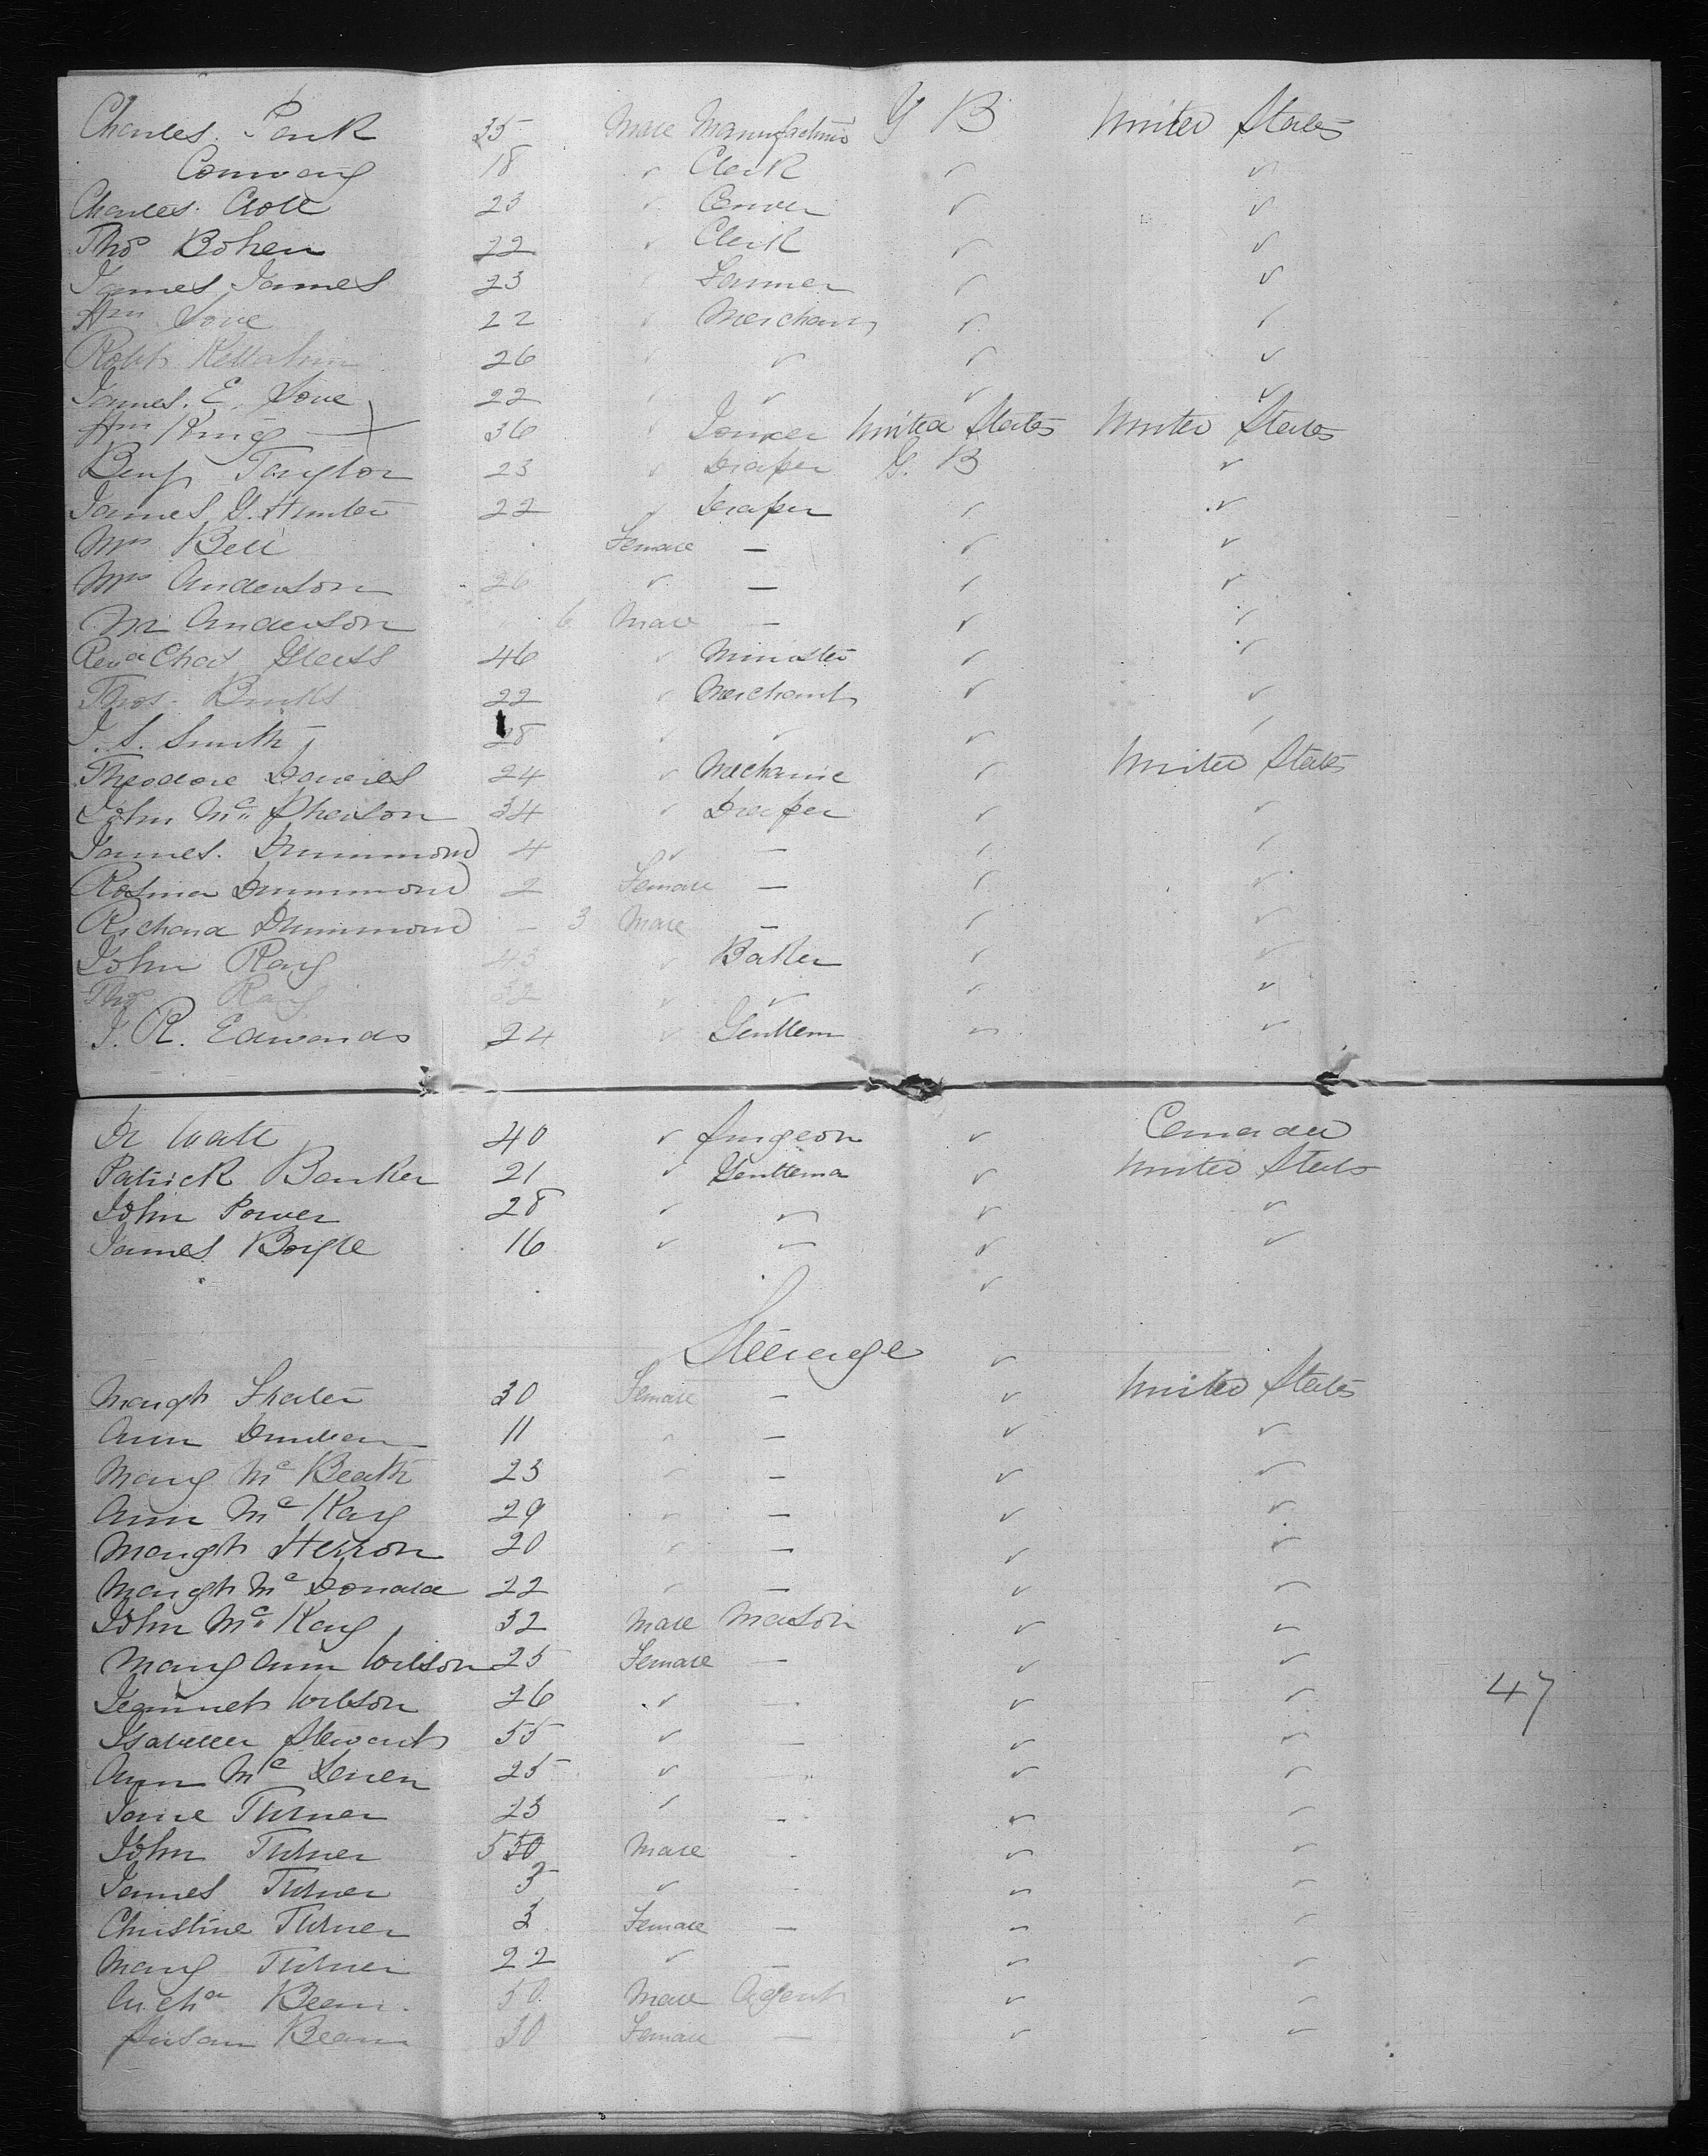 Charles Park 35 Male Manufacturer G B United States
Conway 18 ✓ Clerk ✓ ✓
Charles Croll 23 ✓ Carver ✓ ✓
Thos Bohen 22 ✓ Clerk ✓ ✓
James James 23 ✓ Farmer ✓ ✓
Wm Love 22 ✓ Merchant ✓ ✓
Robt 26 ✓ ✓ ✓ ✓
James E. Love 22 ✓ ✓ ✓ ✓
Wm King 36 ✓ United States United States
Benj Taylor 23 ✓ Draper G. B ✓
James G. Hunter 22 ✓ Draper ✓ ✓
Mrs Bell Female — ✓ ✓
Mrs Anderson 26 ✓ — ✓ ✓
Mr Anderson 6 Male — ✓ ✓
Revd Chas 46 ✓ Minister ✓ ✓
Thos. Binks 22 ✓ Merchant ✓ ✓
J. S. Smith 28 ✓ ✓ ✓ ✓
Theodore Davies 24 ✓ Mechanic ✓ United States
John Mc Pherson 34 ✓ Draper ✓ ✓
James Drummond 4 ✓ — ✓ ✓
Rosina Drummond 2 Female — ✓ ✓
Richard Drummond – 3 Male — ✓ ✓
John Ray 43 ✓ Baker ✓ ✓
Thos Ray 32 ✓ ✓ ✓ ✓
J. R. Edwards 24 ✓ Gentlem ✓ ✓
Dr Watt 40 ✓ Surgeon ✓ Canada
Patrick Banker 21 ✓ Gentlema ✓ United States
John Power 28 ✓ ✓ ✓ ✓
James Boyle 16 ✓ ✓ ✓ ✓
✓
Steerage ✓
Margt Shaler 30 Female — ✓ United States
Ann Dunbar 11 ✓ — ✓ ✓
Mary Mc Beath 23 ✓ — ✓ ✓
Ann Mc Kay 29 ✓ — ✓ ✓
Margt Herron 20 ✓ — ✓ ✓
Margt Mc Donald 22 ✓ — ✓ ✓
John Mc Kay 32 Male Mason ✓ ✓
Mary Ann Wilson 25 Female — ✓ ✓
Jeannet Wilson 26 ✓ — ✓ ✓
Isabella Stewart 55 ✓ — ✓ ✓
Ann Mc Laren 25 ✓ ✓ ✓
Jane Turner 23 ✓ – ✓ ✓
John Turner 550 Male – ✓ ✓
James Turner 5 ✓ – ✓ ✓
Christine Turner 3 Female — ✓ ✓
Mary Turner 22 ✓ — ✓ ✓
Archd Bean 50 Male Agent ✓ ✓
Susan Bean 30 Female — ✓ ✓
47